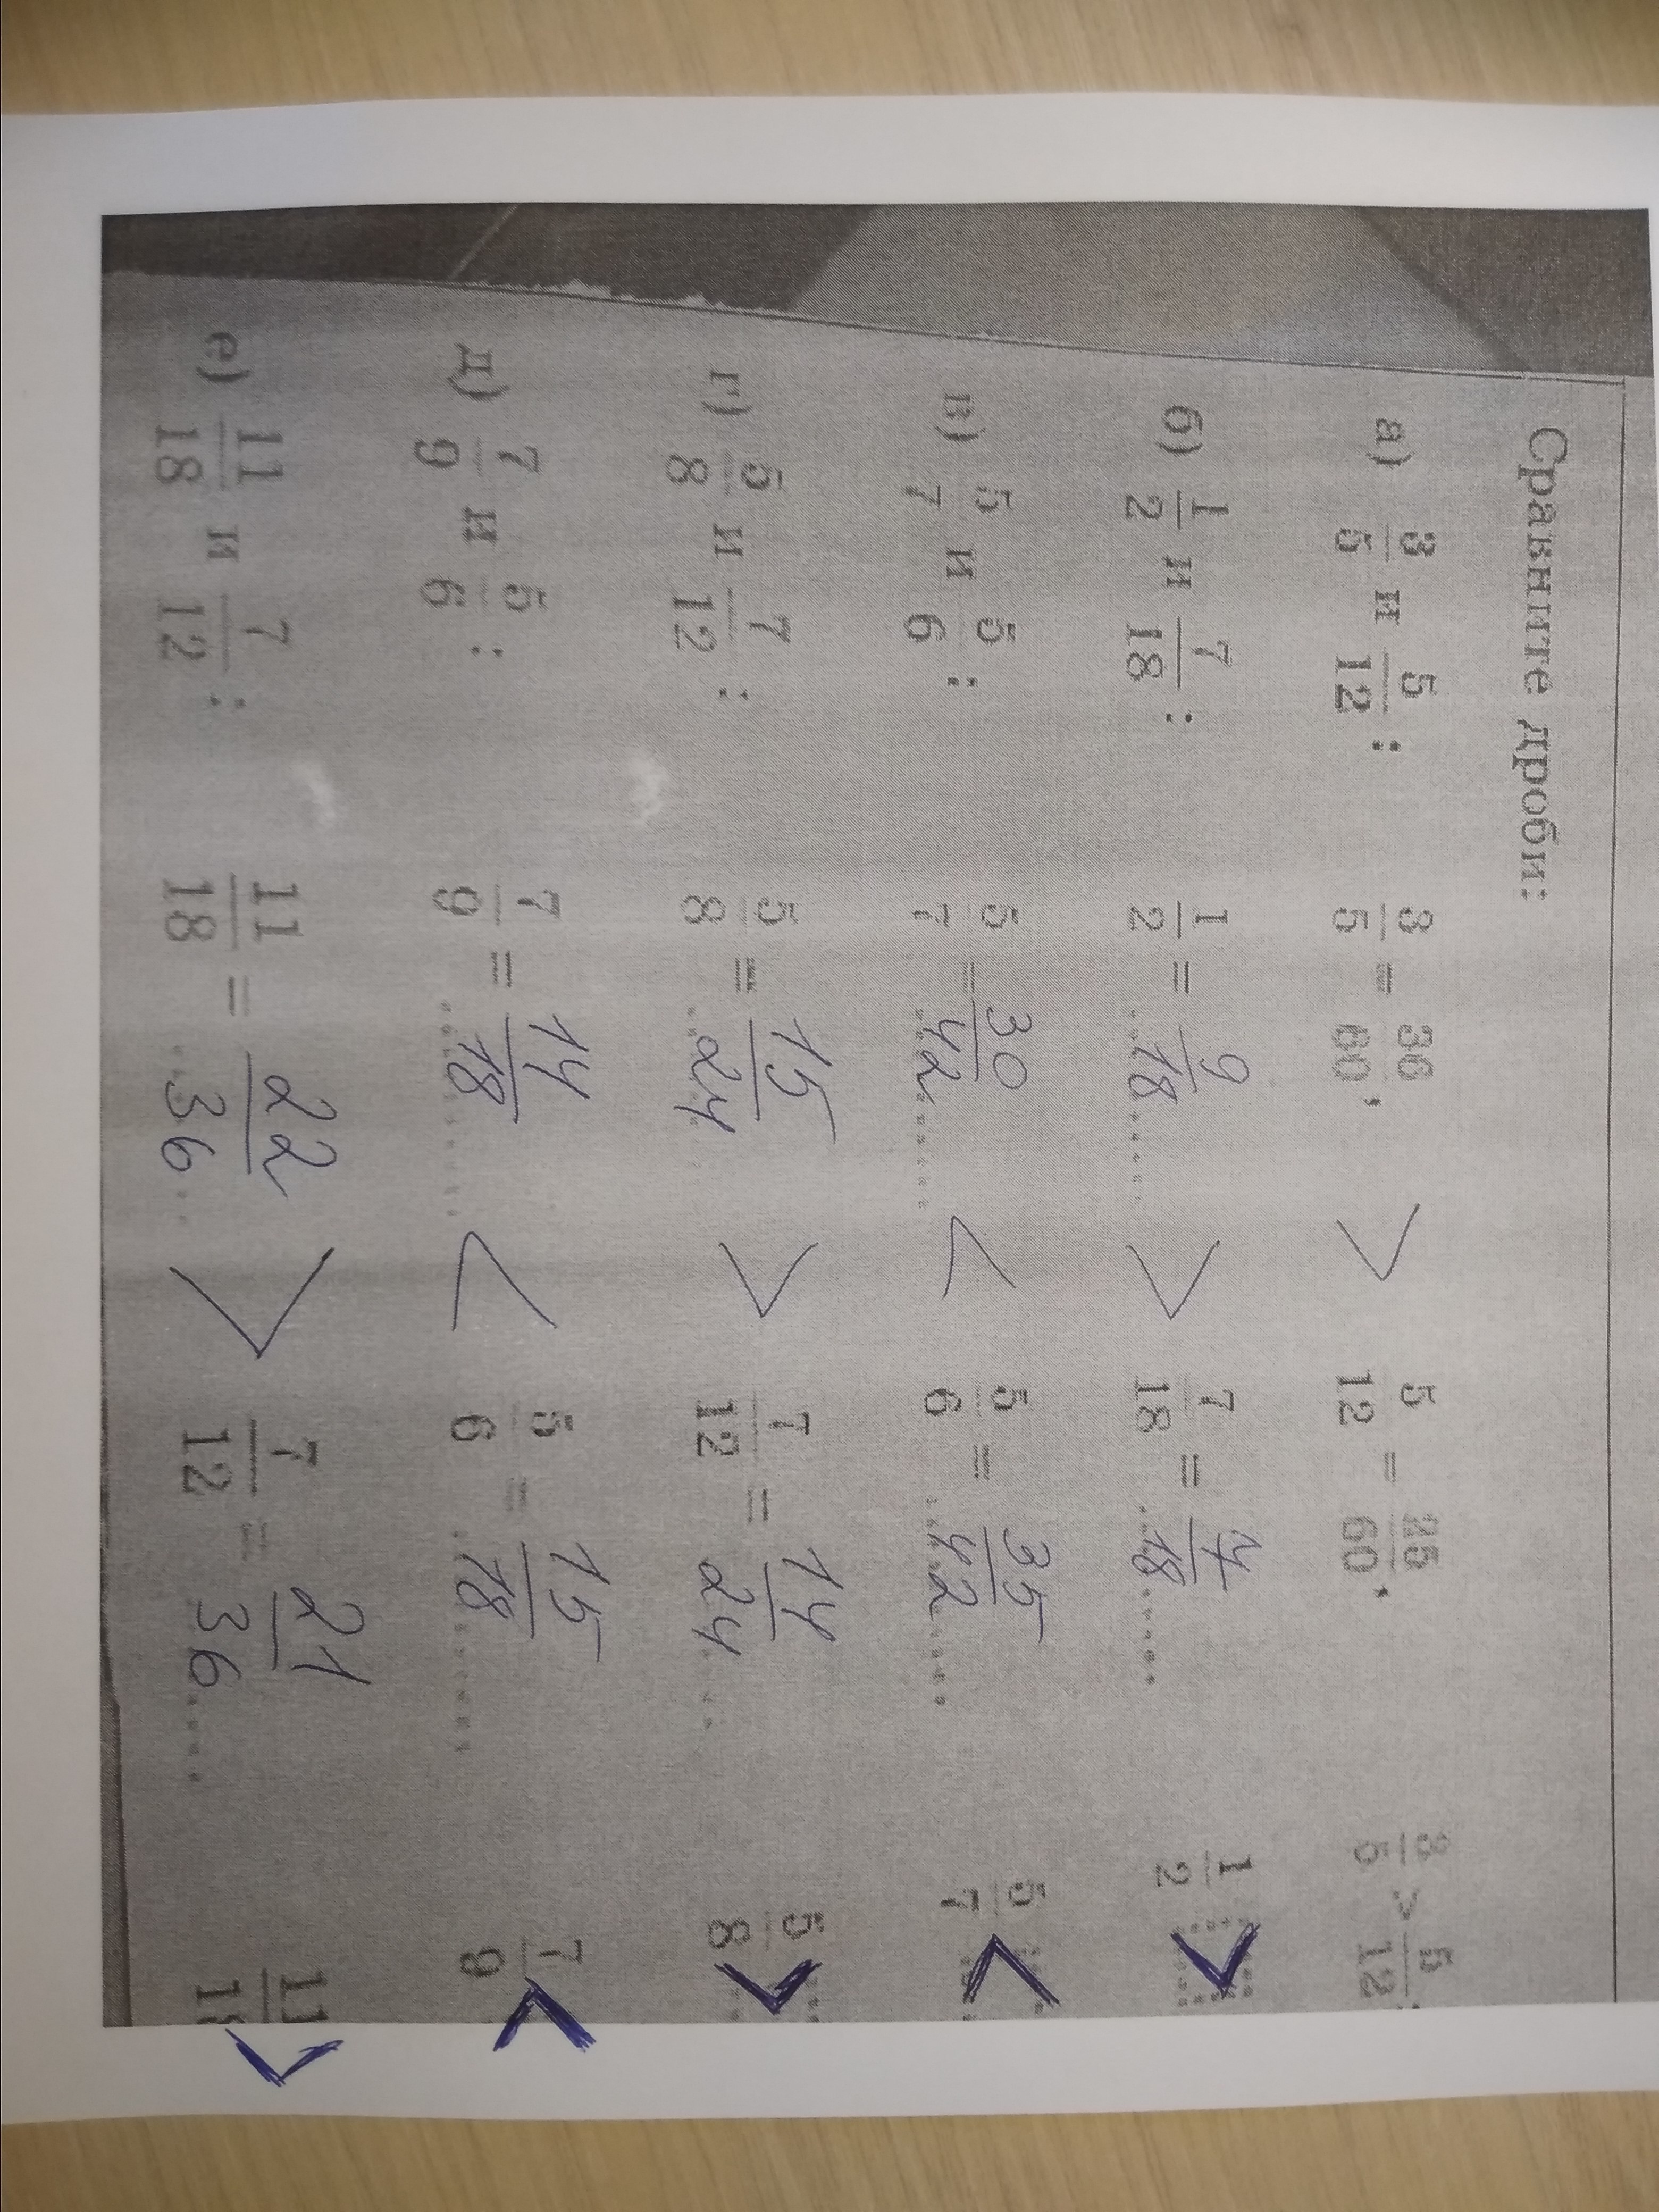 Сравните дроби:
а) 3/5 и 5/12 : 3/5 = 36/60, > 5/12 = 25/60, 3/5 > 5/12
б) 1/2 и 7/18 : 1/2 = 9/18 > 7/18 = 7/18 1/2 >
в) 5/7 и 5/6 : 5/7 = 30/42 < 5/6 = 35/42 5/7 <
г) 5/8 и 7/12 : 5/8 = 15/24 > 7/12 = 14/24 5/8 >
д) 7/9 и 5/6 : 7/9 = 14/18 < 5/6 = 15/18 7/9 <
е) 11/18 и 7/12 : 11/18 = 22/36 > 7/12 = 21/36 11/18 >